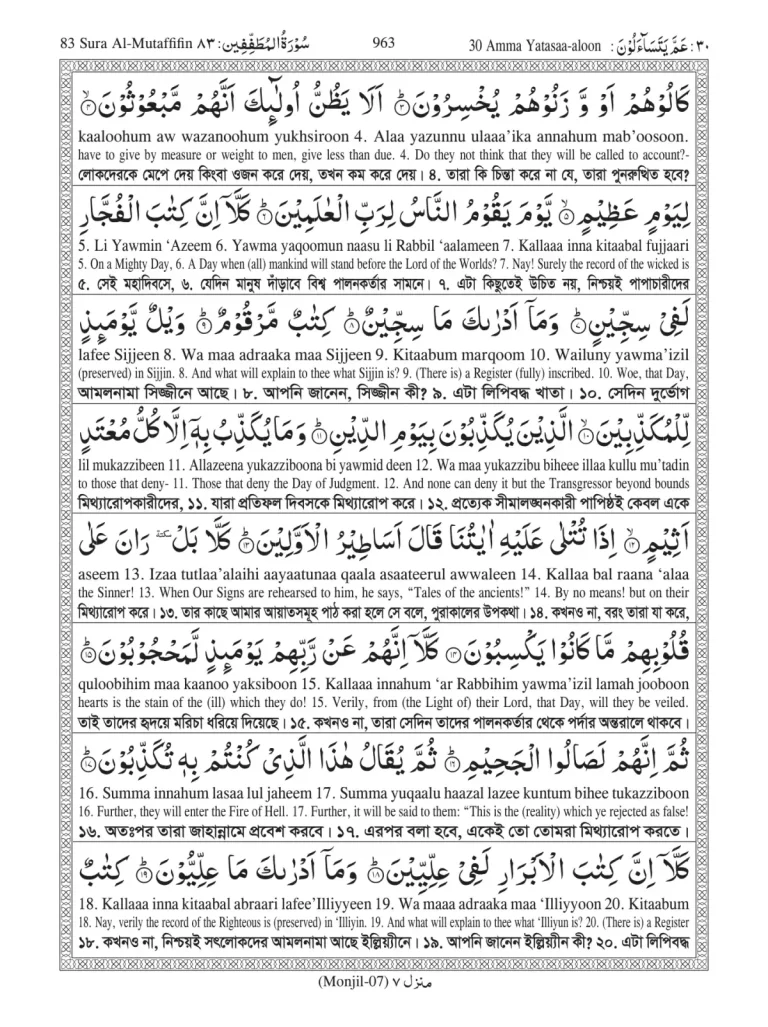 83 Sura Al-Mutaffifin ৮৩: سُوْرَةُ الْمُطَفِّفِيْنَ 963 30 Amma Yatasaa-aloon : عَمَّ يَتَسَآءَلُوْنَ : ৩০
كَالُوْهُمْ اَوْ وَّ زَنُوْهُمْ يُخْسِرُوْنَ ﴿۳﴾ اَلَا يَظُنُّ اُولٰٓئِكَ اَنَّهُمْ مَّبْعُوْثُوْنَ ﴿۴﴾
kaaloohum aw wazanoohum yukhsiroon 4. Alaa yazunnu ulaaa’ika annahum mab’oosoon.
have to give by measure or weight to men, give less than due. 4. Do they not think that they will be called to account?-
লোকদেরকে মেপে দেয় কিংবা ওজন করে দেয়, তখন কম করে দেয়। ৪. তারা কি চিন্তা করে না যে, তারা পুনরুত্থিত হবে?
لِيَوْمٍ عَظِيْمٍ ﴿۵﴾ يَّوْمَ يَقُوْمُ النَّاسُ لِرَبِّ الْعٰلَمِيْنَ ﴿۶﴾ كَلَّآ اِنَّ كِتٰبَ الْفُجَّارِ
5. Li Yawmin ‘Azeem 6. Yawma yaqoomun naasu li Rabbil ‘aalameen 7. Kallaaa inna kitaabal fujjaari
5. On a Mighty Day, 6. A Day when (all) mankind will stand before the Lord of the Worlds? 7. Nay! Surely the record of the wicked is
৫. সেই মহাদিবসে, ৬. যেদিন মানুষ দাঁড়াবে বিশ্ব পালনকর্তার সামনে। ৭. এটা কিছুতেই উচিত নয়, নিশ্চয়ই পাপাচারীদের
لَفِيْ سِجِّيْنٍ ﴿۷﴾ وَمَآ اَدْرٰىكَ مَا سِجِّيْنٌ ﴿۸﴾ كِتٰبٌ مَّرْقُوْمٌ ﴿۹﴾ وَيْلٌ يَّوْمَئِذٍ
lafee Sijjeen 8. Wa maa adraaka maa Sijjeen 9. Kitaabum marqoom 10. Wailuny yawma’izil
(preserved) in Sijjin. 8. And what will explain to thee what Sijjin is? 9. (There is) a Register (fully) inscribed. 10. Woe, that Day,
আমলনামা সিজ্জীনে আছে। ৮. আপনি জানেন, সিজ্জীন কী? ৯. এটা লিপিবদ্ধ খাতা। ১০. সেদিন দুর্ভোগ
لِّلْمُكَذِّبِيْنَ ﴿۱۰﴾ الَّذِيْنَ يُكَذِّبُوْنَ بِيَوْمِ الدِّيْنِ ﴿۱۱﴾ وَمَا يُكَذِّبُ بِهٖٓ اِلَّا كُلُّ مُعْتَدٍ
lil mukazzibeen 11. Allazeena yukazziboona bi yawmid deen 12. Wa maa yukazzibu biheee illaa kullu mu’tadin
to those that deny- 11. Those that deny the Day of Judgment. 12. And none can deny it but the Transgressor beyond bounds
মিথ্যারোপকারীদের, ১১. যারা প্রতিফল দিবসকে মিথ্যারোপ করে। ১২. প্রত্যেক সীমালঙ্ঘনকারী পাপিষ্ঠই কেবল একে
اَثِيْمٍ ﴿۱۲﴾ اِذَا تُتْلٰى عَلَيْهِ اٰيٰتُنَا قَالَ اَسَاطِيْرُ الْاَوَّلِيْنَ ﴿۱۳﴾ كَلَّا بَلْ سكتة رَانَ عَلٰى
aseem 13. Izaa tutlaa’alaihi aayaatunaa qaala asaateerul awwaleen 14. Kallaa bal raana ‘alaa
the Sinner! 13. When Our Signs are rehearsed to him, he says, “Tales of the ancients!” 14. By no means! but on their
মিথ্যারোপ করে। ১৩. তার কাছে আমার আয়াতসমূহ পাঠ করা হলে সে বলে, পুরাকালের উপকথা। ১৪. কখনও না, বরং তারা যা করে,
قُلُوْبِهِمْ مَّا كَانُوْا يَكْسِبُوْنَ ﴿۱۴﴾ كَلَّآ اِنَّهُمْ عَنْ رَّبِّهِمْ يَوْمَئِذٍ لَّمَحْجُوْبُوْنَ ﴿۱۵﴾
quloobihim maa kaanoo yaksiboon 15. Kallaaa innahum ‘ar Rabbihim yawma’izil lamah jooboon
hearts is the stain of the (ill) which they do! 15. Verily, from (the Light of) their Lord, that Day, will they be veiled.
তাই তাদের হৃদয়ে মরিচা ধরিয়ে দিয়েছে। ১৫. কখনও না, তারা সেদিন তাদের পালনকর্তার থেকে পর্দার অন্তরালে থাকবে।
ثُمَّ اِنَّهُمْ لَصَالُوا الْجَحِيْمِ ﴿۱۶﴾ ثُمَّ يُقَالُ هٰذَا الَّذِيْ كُنْتُمْ بِهٖ تُكَذِّبُوْنَ ﴿۱۷﴾
16. Summa innahum lasaa lul jaheem 17. Summa yuqaalu haazal lazee kuntum bihee tukazziboon
16. Further, they will enter the Fire of Hell. 17. Further, it will be said to them: “This is the (reality) which ye rejected as false!
১৬. অতঃপর তারা জাহান্নামে প্রবেশ করবে। ১৭. এরপর বলা হবে, একেই তো তোমরা মিথ্যারোপ করতে।
كَلَّآ اِنَّ كِتٰبَ الْاَبْرَارِ لَفِيْ عِلِّيِّيْنَ ﴿۱۸﴾ وَمَآ اَدْرٰىكَ مَا عِلِّيُّوْنَ ﴿۱۹﴾ كِتٰبٌ
18. Kallaaa inna kitaabal abraari lafee’Illiyyeen 19. Wa maaa adraaka maa ‘Illiyyoon 20. Kitaabum
18. Nay, verily the record of the Righteous is (preserved) in ‘Illiyin. 19. And what will explain to thee what ‘Illiyun is? 20. (There is) a Register
১৮. কখনও না, নিশ্চয়ই সৎলোকদের আমলনামা আছে ইল্লিয়্যীনে। ১৯. আপনি জানেন ইল্লিয়্যীন কী? ২০. এটা লিপিবদ্ধ
(Monjil-07) منزل ۷